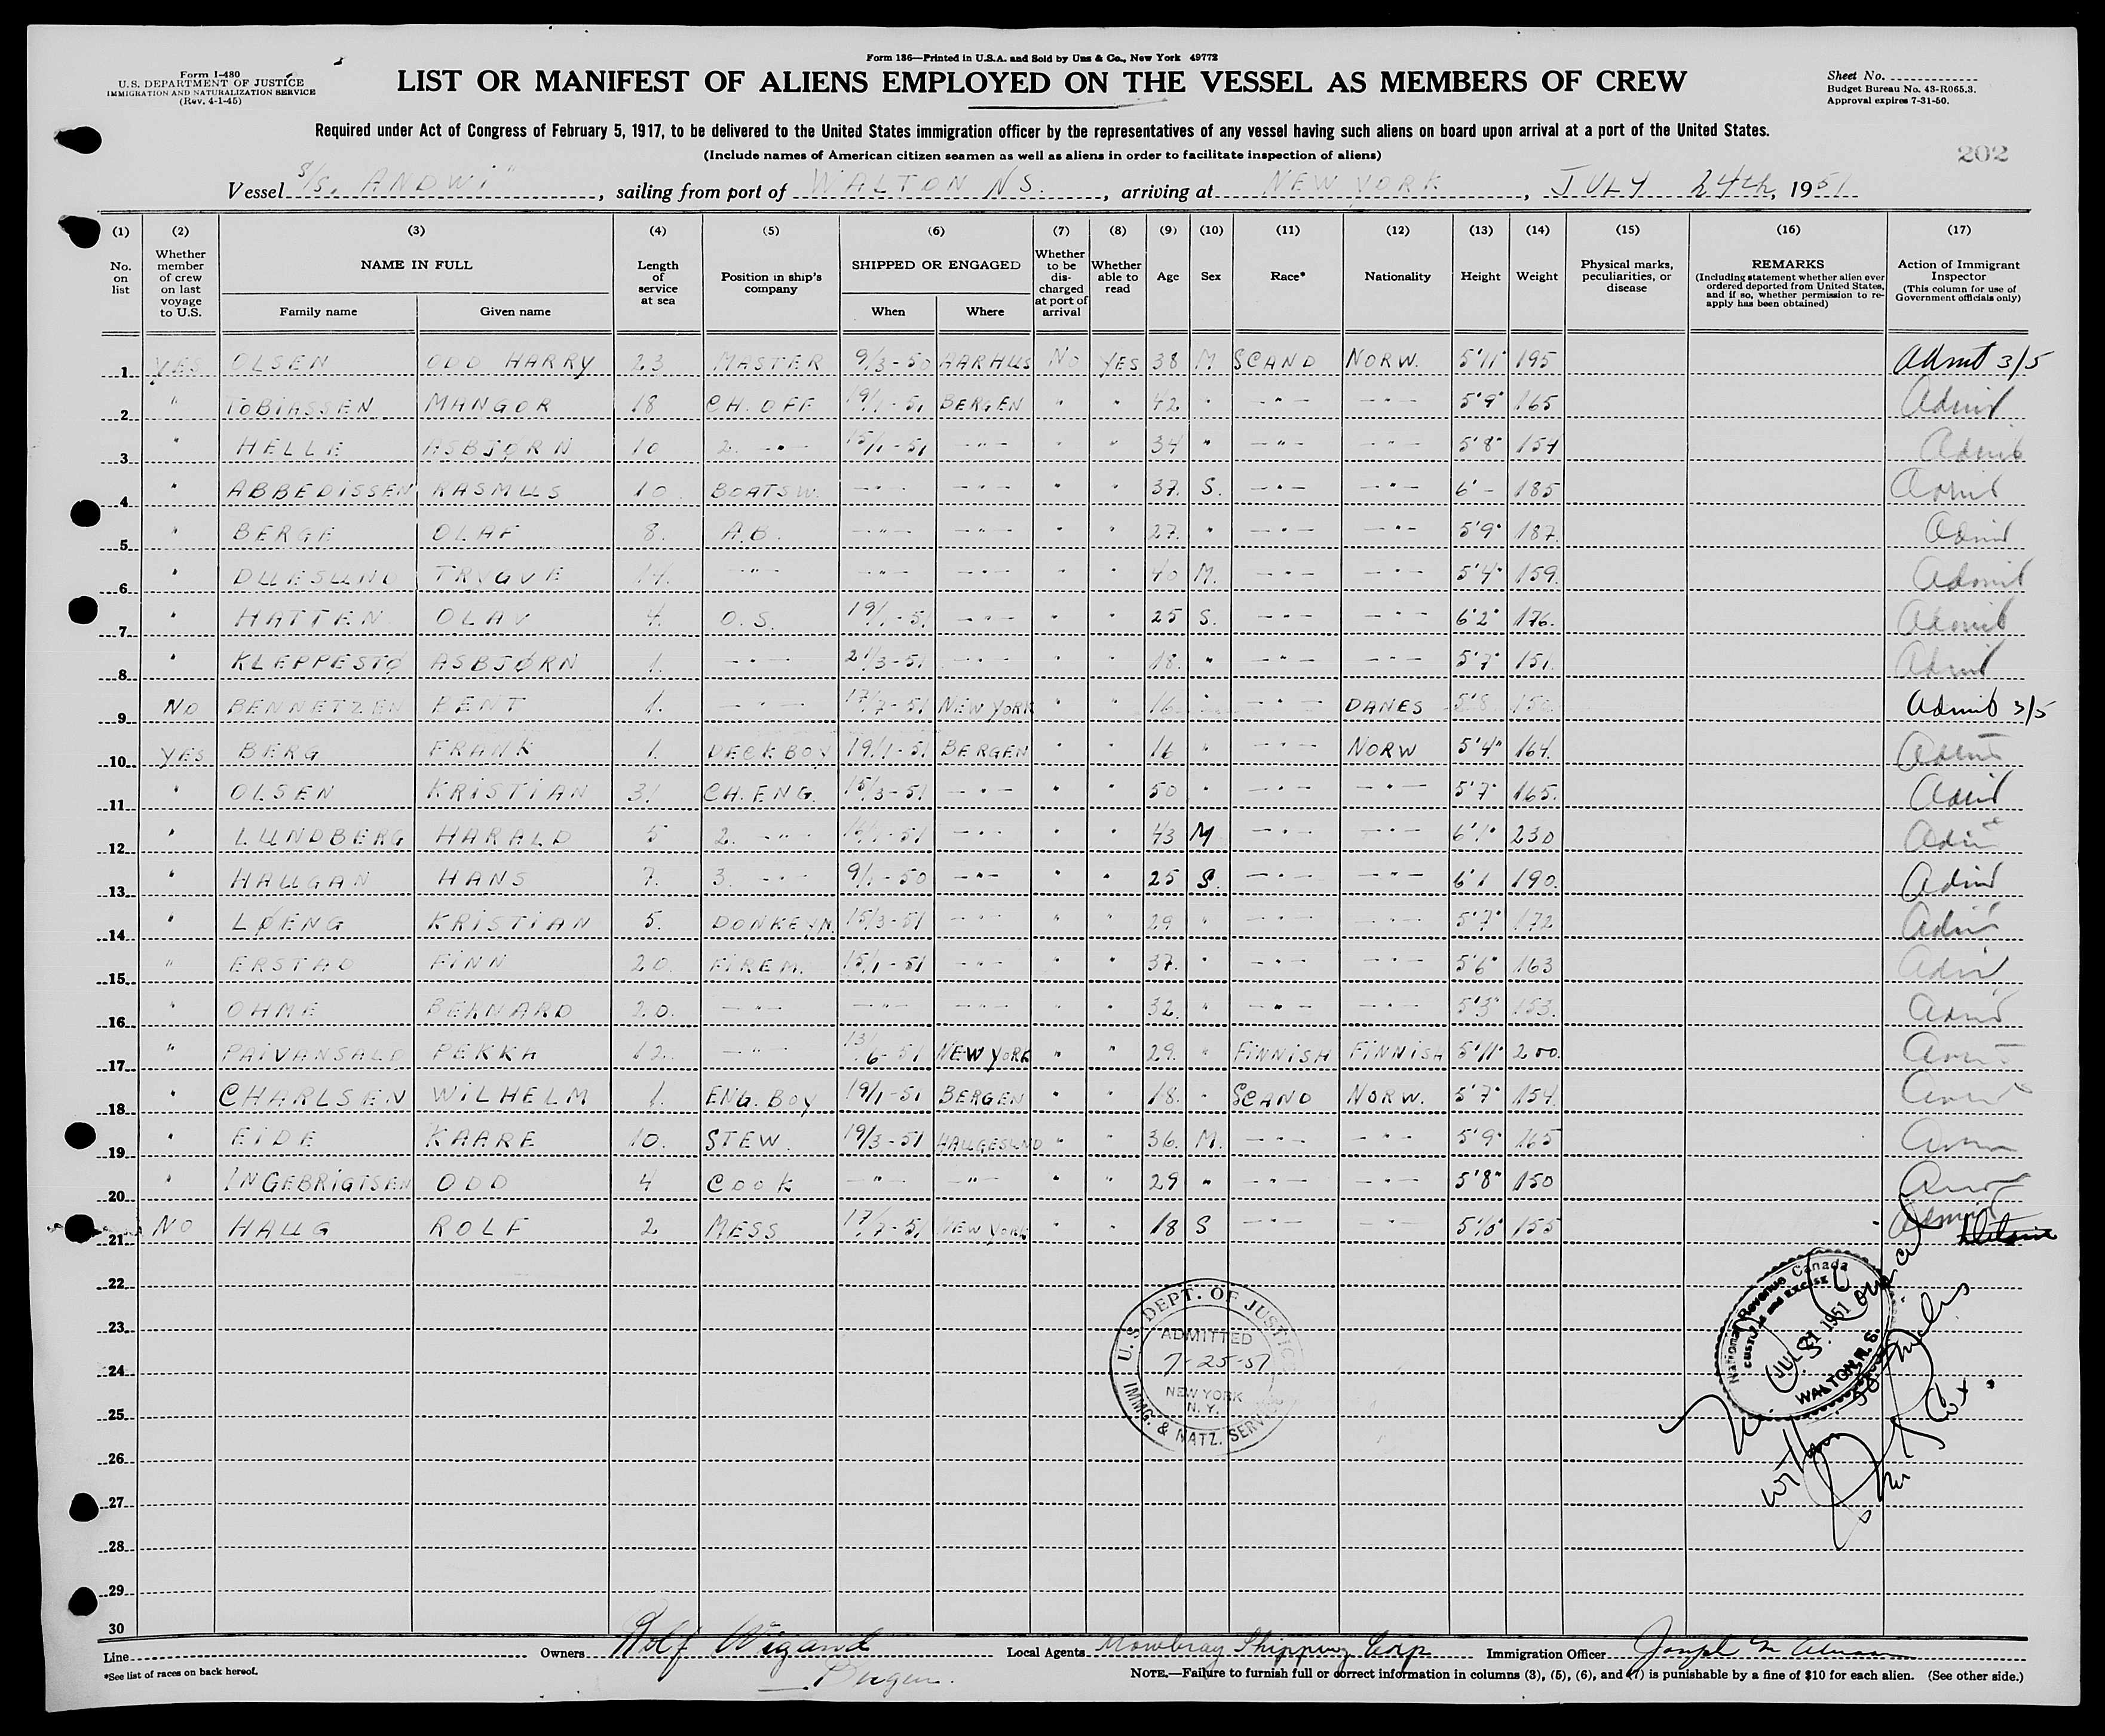 Form 186—Printed in U.S.A. and Sold by Unz & Co., New York 49772
Form I-480
U.S. DEPARTMENT OF JUSTICE
IMMIGRATION AND NATURALIZATION SERVICE
(Rev. 4-1-45)
LIST OR MANIFEST OF ALIENS EMPLOYED ON THE VESSEL AS MEMBERS OF CREW
Sheet No.
Budget Bureau No. 43-R065.3.
Approval expires 7-31-50.
Required under Act of Congress of February 5, 1917, to be delivered to the United States immigration officer by the representatives of any vessel having such aliens on board upon arrival at a port of the United States.
(Include names of American citizen seamen as well as aliens in order to facilitate inspection of aliens)
202
Vessel S/S. ANDWI", sailing from port of WALTON N.S., arriving at NEW YORK, JULY 24th, 1951
(1) (2) (3) (4) (5) (6) (7) (8) (9) (10) (11) (12) (13) (14) (15) (16) (17)
No. on list
Whether member of crew on last voyage to U.S.
NAME IN FULL
Family name
Given name
Length of service at sea
Position in ship's company
SHIPPED OR ENGAGED
When
Where
Whether to be discharged at port of arrival
Whether able to read
Age
Sex
Race*
Nationality
Height
Weight
Physical marks, peculiarities, or disease
REMARKS
(Including statement whether alien ever ordered deported from United States, and if so, whether permission to reapply has been obtained)
Action of Immigrant Inspector
(This column for use of Government officials only)
1 YES OLSEN ODD HARRY 23 MASTER 9/3-50 AARHUS NO YES 38 M SCAND NORW. 5'11" 195 Admit 3/5
2 " TOBIASSEN MANGOR 18 CH. OFF 19/1-51 BERGEN " " 42 " —"— —"— 5'9" 165 Admit
3 " HELLE ASBJØRN 10 2. —"— 15/1-51 —"— " " 34 " —"— —"— 5'8" 154 Admit
4 " ABBEDISSEN RASMUS 10. BOATSW. —"— —"— " " 37. S. —"— —"— 6'- 185 Admit
5 " BERGE OLAF 8. A.B. —"— —"— " " 27. " —"— —"— 5'9" 187. Admit
6 " DUESUND TRYGVE 14. —"— —"— —"— " " 40 M. —"— —"— 5'4" 159. Admit
7 " HATTEN OLAV 4. O.S. 19/1-51. —"— " " 25 S. —"— —"— 6'2" 176. Admit
8 " KLEPPESTØ ASBJØRN 1. —"— 21/3-51 —"— " " 18. " —"— —"— 5'7" 151. Admit
9 NO BENNETZEN BENT 1. —"— 17/7-51 NEW YORK " " 16 " —"— DANES 5'8 150 Admit 3/5
10 YES BERG FRANK 1. DECKBOY 19/1-51 BERGEN " " 16 " —"— NORW 5'4" 164. Admit
11 " OLSEN KRISTIAN 31 CH. ENG. 15/3-51 —"— " " 50 " —"— —"— 5'7" 165. Admit
12 " LUNDBERG HARALD 5 2. —"— 15/1-51 —"— " " 43 M —"— —"— 6'1" 230 Admit
13 " HAUGAN HANS 7. 3. —"— 9/1-50 —"— " " 25 S. —"— —"— 6'1 190. Admit
14 " LØENG KRISTIAN 5. DONKEYM. 15/3-51 —"— " " 29 " —"— —"— 5'7" 172 Admit
15 " ERSTAD FINN 20. FIREM. 15/1-51 —"— " " 37. " —"— —"— 5'6" 163 Admit
16 " OHME BERNARD 20. —"— —"— —"— " " 32. " —"— —"— 5'3" 153. Admit
17 " PAIVANSALO PEKKA 12. —"— 13/6-51 NEW YORK " " 29. " FINNISH FINNISH 5'11" 200. Admit
18 " CHARLSEN WILHELM 1. ENG. BOY 19/1-51 BERGEN " " 18. " SCAND NORW. 5'7" 154. Admit
19 " EIDE KAARE 10. STEW. 19/3-51 HAUGESUND " " 36. M. —"— —"— 5'9" 165 Admit
20 " INGEBRIGTSEN ODD 4 COOK —"— —"— " " 29 " —"— —"— 5'8" 150 Admit
21 NO HAUG ROLF 2 MESS 17/7-51 NEW YORK " " 18 S —"— —"— 5'10" 155 Admit
22
23
24
25
26
27
28
29
30
U.S. DEPT. OF JUSTICE
ADMITTED
7-25-51
NEW YORK
N.Y.
IMMG. & NATZ. SERVICE
National Revenue Canada
CUSTOMS and EXCISE
JUL 21 1951
WALTON, N. S.
Line
Owners Rolf Wigand
Bergen.
Local Agents Mowbray Shipping Corp
Immigration Officer
*See list of races on back hereof.
NOTE.—Failure to furnish full or correct information in columns (3), (5), (6), and (7) is punishable by a fine of $10 for each alien. (See other side.)